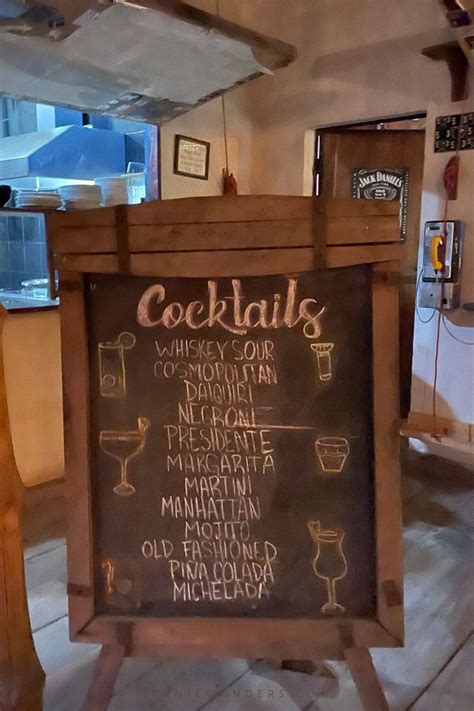 JACK DANIEL'S
Cocktails
WHISKEY SOUR
COSMOPOLITAN
DAIQUIRI
NEGRONI
PRESIDENTE
MARGARITA
MARTINI
MANHATTAN
MOJITO
OLD FASHIONED
PIÑA COLADA
MICHELADA